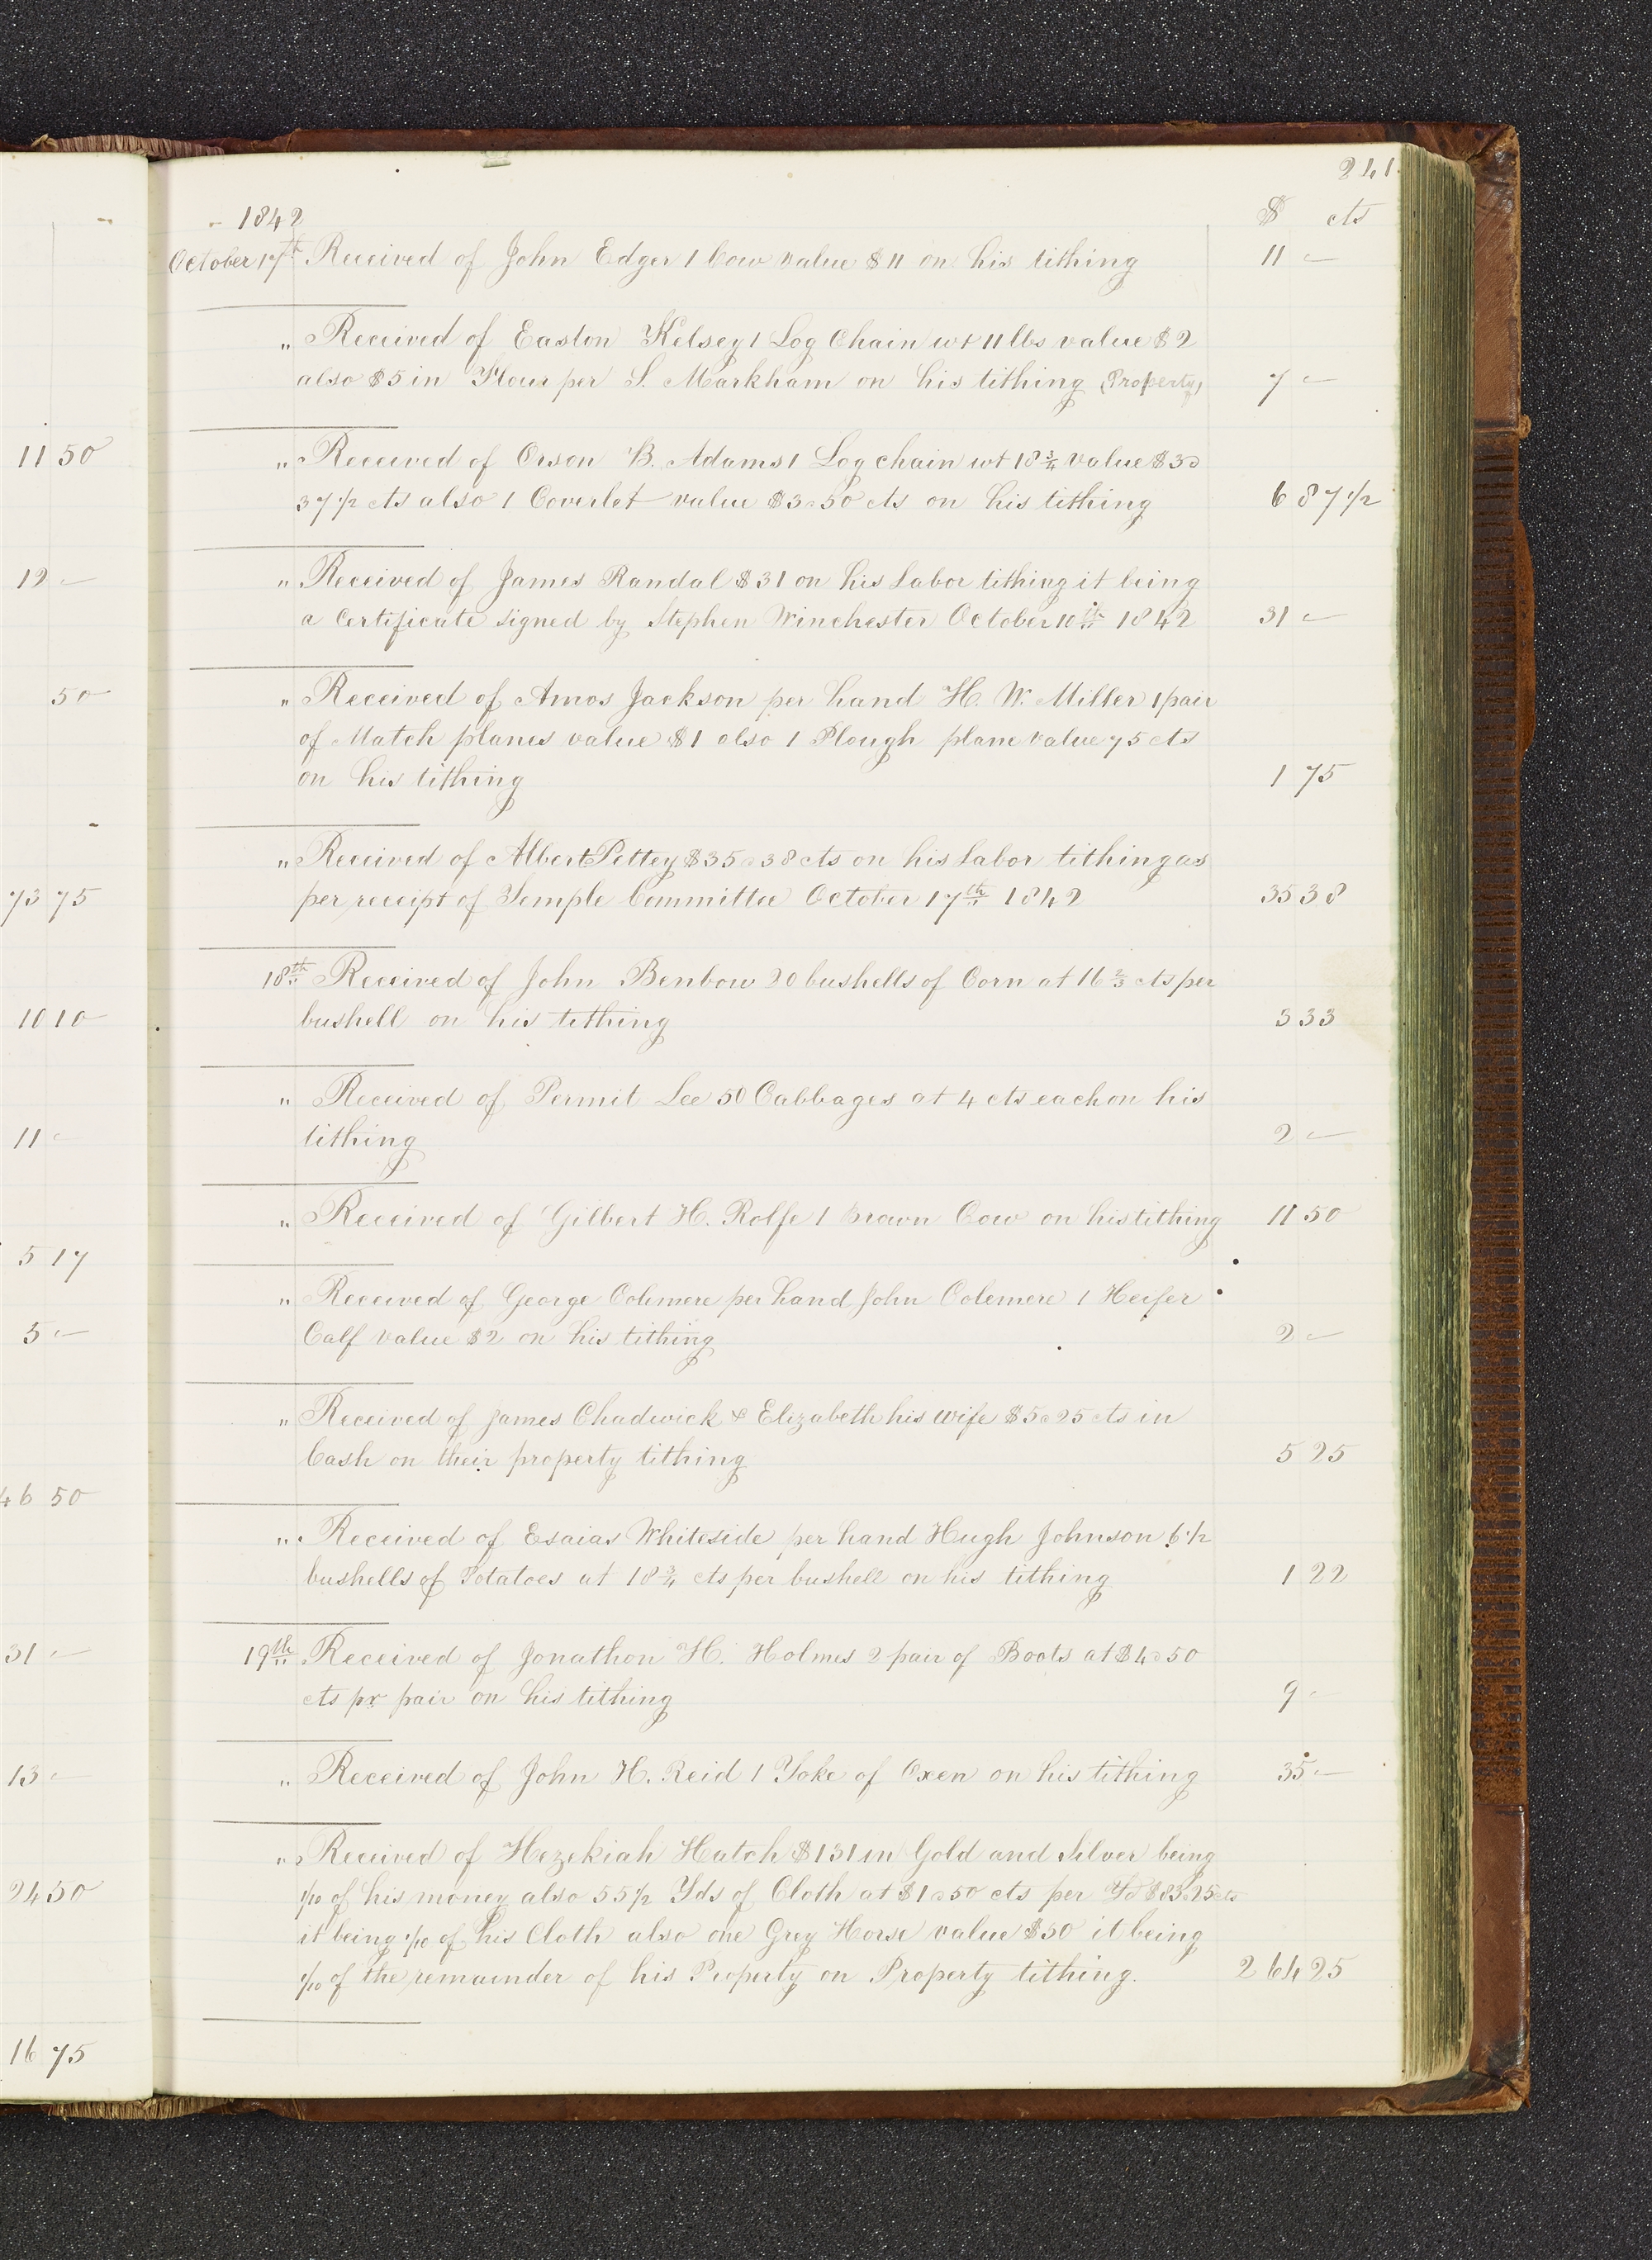 11 50
12 –
50
73 75
10 10
11 –
5 17
5 –
46 50
31 –
13 –
24 50
16 75
241
1842 $ cts
October 17th Received of John Edger 1 Cow value $11 on his tithing 11 –
" Received of Easton Kelsey 1 Log Chain wt 11 lbs value $2
also $5 in Flour per S. Markham on his tithing (Property) 7 –
" Received of Orson B. Adams 1 Log chain wt 18 3/4 value $3 =
37 1/2 cts also 1 Coverlet value $3=50 cts on his tithing 6 87 1/2
" Received of James Randal $31 on his Labor tithing it being
a Certificate signed by Stephen Winchester October 10th 1842 31 –
" Received of Amos Jackson per hand H. W. Miller 1 pair
of Match planes value $1 also 1 Plough plane value 75 cts
on his tithing 1 75
" Received of Albert Pettey $35=38 cts on his Labor tithing as
per receipt of Temple Committee October 17th 1842 35 38
18th Received of John Benbow 20 bushells of Corn at 16 2/3 cts per
bushell on his tithing 3 33
" Received of Permit Lee 50 Cabbages at 4 cts each on his
tithing 2 –
" Received of Gilbert H. Rolfe 1 Brown Cow on his tithing 11 50
" Received of George Colemere per hand John Colemere 1 Heifer
Calf value $2 on his tithing 2 –
" Received of James Chadwick & Elizabeth his wife $5=25 cts in
Cash on their property tithing 5 25
" Received of Esaias Whiteside per hand Hugh Johnson 6 1/2
bushells of Potatoes at 18 3/4 cts per bushell on his tithing 1 22
19th Received of Jonathon H. Holmes 2 pair of Boots at $4=50
cts pr pair on his tithing 9 –
" Received of John H. Reid 1 Yoke of Oxen on his tithing 35 –
" Received of Hezekiah Hatch $131 in Gold and Silver being
1/10 of his money also 55 1/2 Yds of Cloth at $1=50 cts per Yd $83=25 cts
it being 1/10 of his Cloth also one Grey Horse value $50 it being
1/10 of the remainder of his Property on Property tithing. 264 25